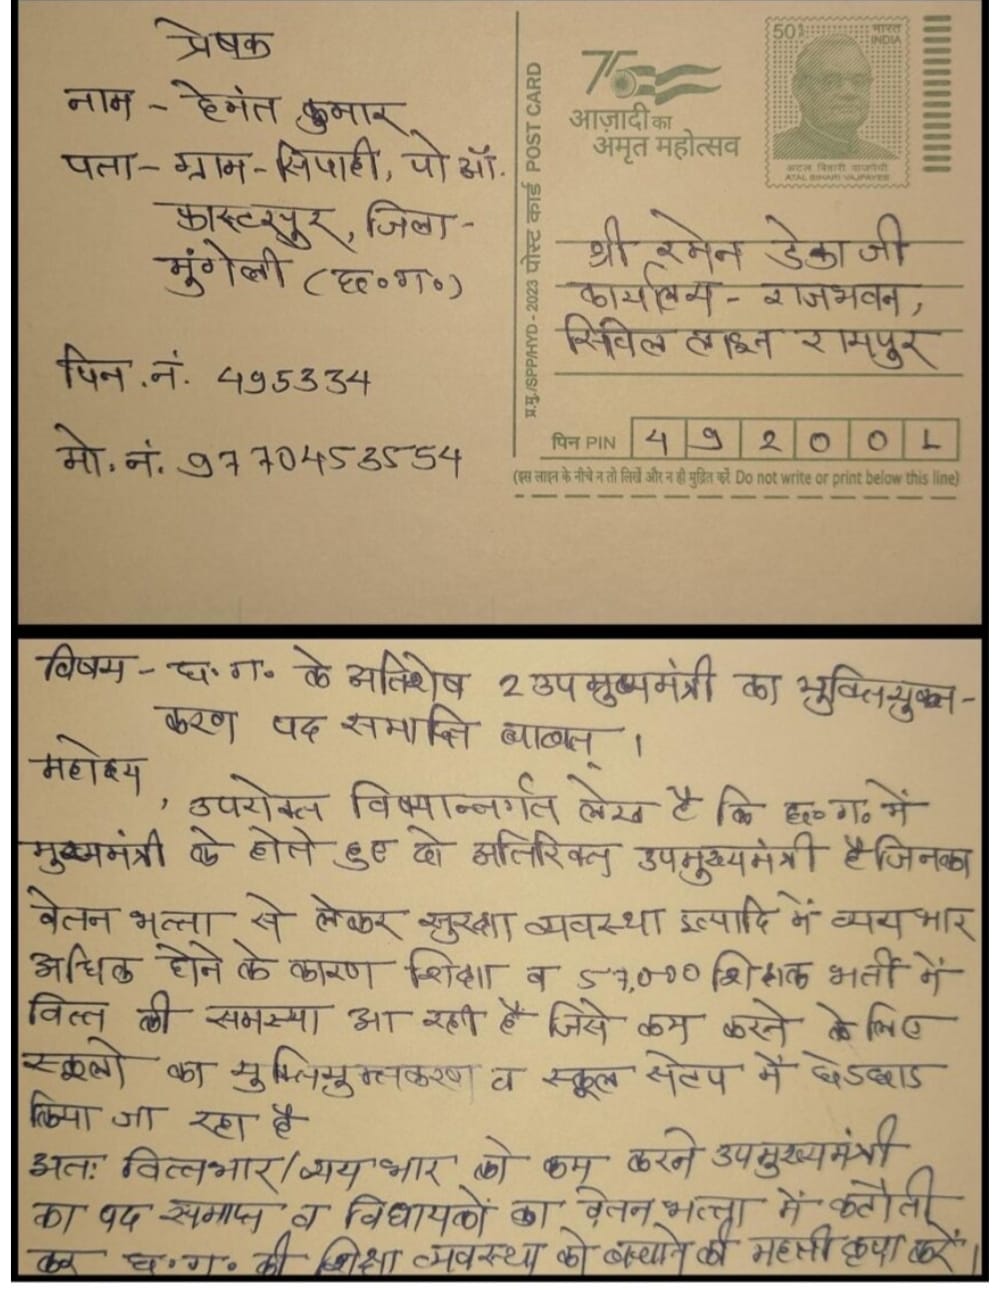 प्रेषक
नाम - हेमंत कुमार
पता - ग्राम - सिपाही, पो ऑ.
कास्टरपुर, जिला -
मुंगेली (छ०ग०)
पिन.नं. 495334
मो.नं. 9770453554
प्र.मु./SPP/HYD - 2023 पोस्ट कार्ड POST CARD
75
आज़ादी का
अमृत महोत्सव
50
भारत
INDIA
अटल बिहारी वाजपेयी
ATAL BIHARI VAJPAYEE
श्री रमेन डेका जी
कार्यालय - राजभवन,
सिविल लाइन रायपुर
पिन PIN 492001
(इस लाइन के नीचे न तो लिखें और न ही मुद्रित करें Do not write or print below this line)
विषय - छ.ग. के अतिशेष 2 उपमुख्यमंत्री का युक्तियुक्त-
करण पद समाप्ति बाबत् ।
महोदय,
उपरोक्त विषयान्तर्गत लेख है कि छ०ग० में
मुख्यमंत्री के होते हुए दो अतिरिक्त उपमुख्यमंत्री है जिनका
वेतन भत्ता से लेकर सुरक्षा व्यवस्था इत्यादि में व्ययभार
अधिक होने के कारण शिक्षा व 57,000 शिक्षक भर्ती में
वित्त की समस्या आ रही है जिसे कम करने के लिए
स्कूलो का युक्तियुक्तकरण व स्कूल सेटप में छेडछाड
किया जा रहा है
अतः वित्तभार/व्यय भार को कम करने उपमुख्यमंत्री
का पद समाप्त व विधायकों का वेतन भत्ता में कटौती
कर छ.ग. की शिक्षा व्यवस्था को बचाने की महती कृपा करें।